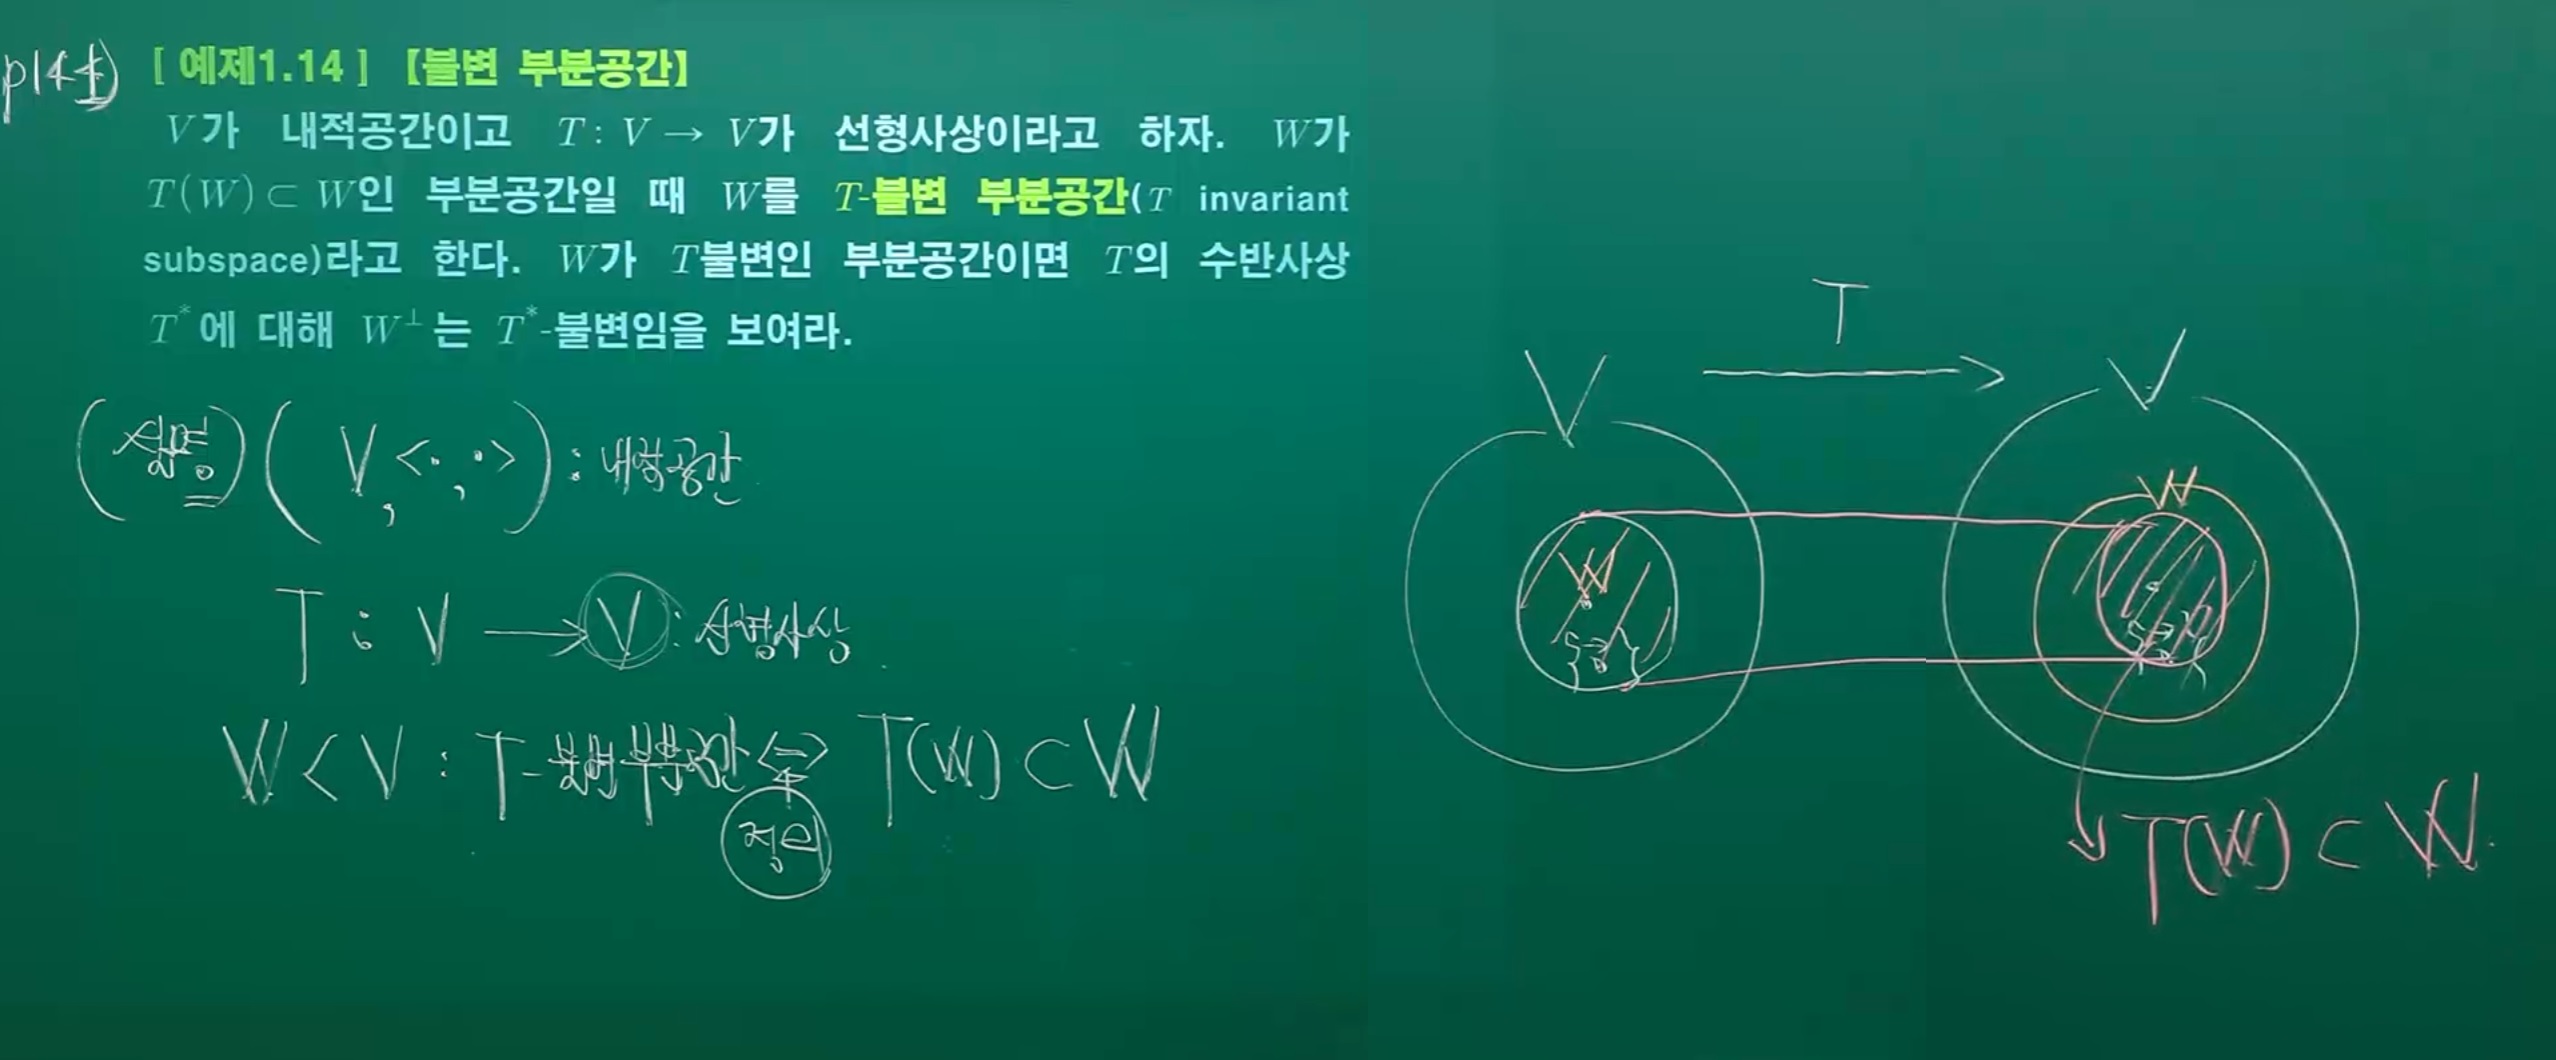 p144)
[ 예제1.14 ] 【불변 부분공간】
V가 내적공간이고 T : V → V가 선형사상이라고 하자. W가
T(W) ⊂ W인 부분공간일 때 W를 T-불변 부분공간(T invariant
subspace)라고 한다. W가 T불변인 부분공간이면 T의 수반사상
T*에 대해 W⊥는 T*-불변임을 보여라.
(설명) (V, <·, ·>) : 내적공간
T : V → V : 선형사상
W < V : T-불변부분공간 <=> T(W) ⊂ W
정의
T
V
V
W
W
T(W) ⊂ W